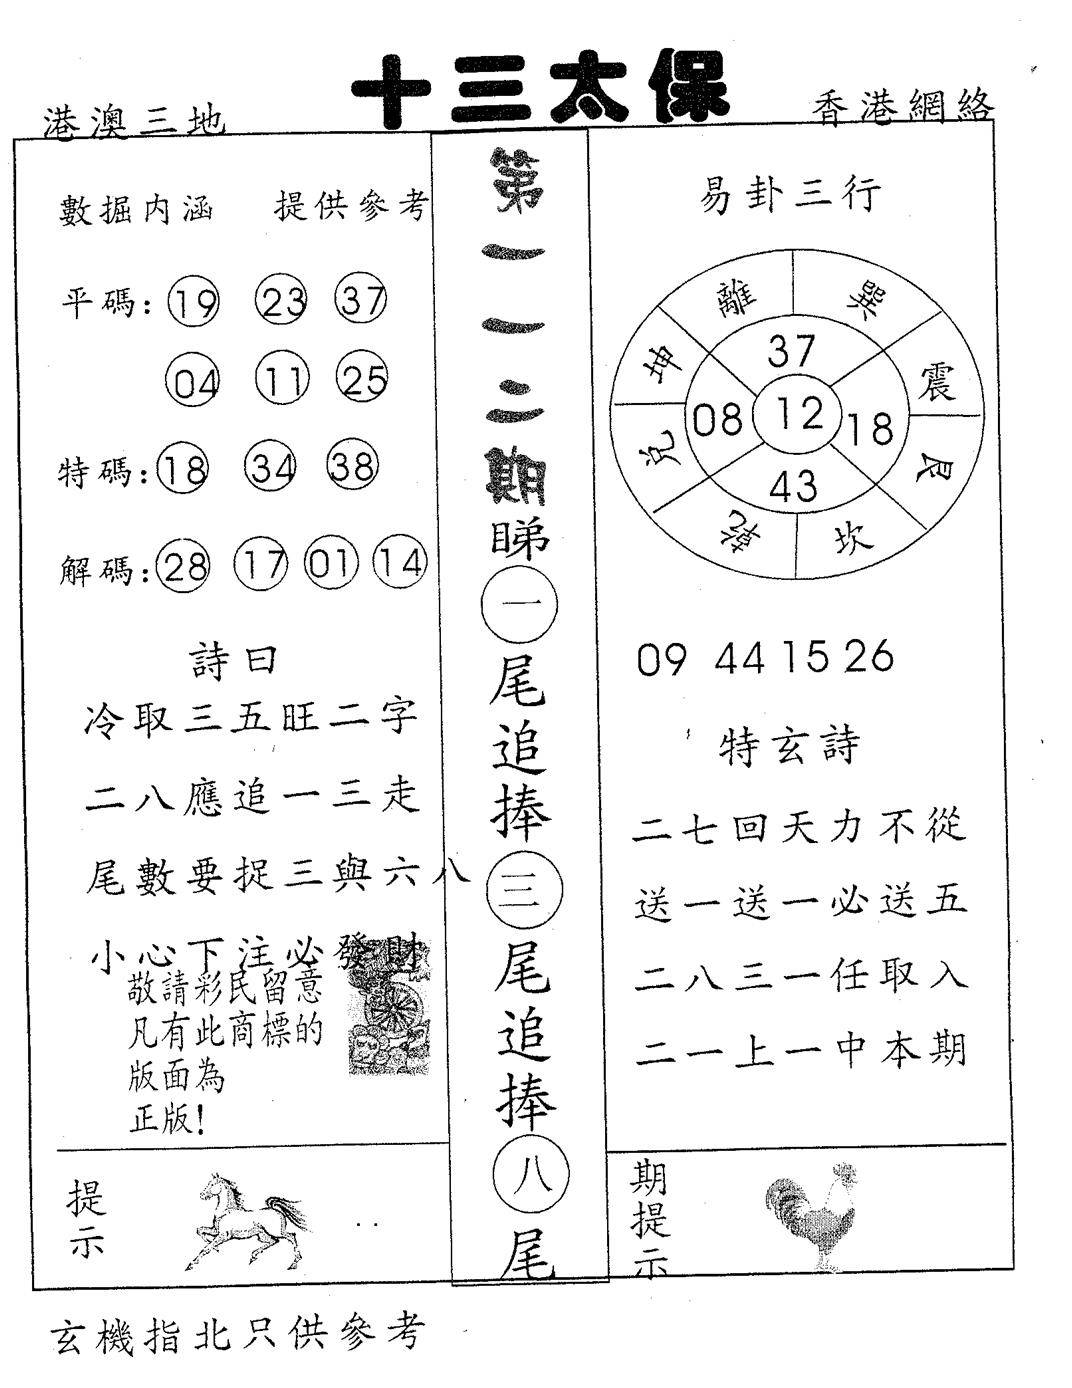 十三太保
港澳三地
香港網絡
數掘内涵 提供參考
平碼: 19 23 37
04 11 25
特碼: 18 34 38
解碼: 28 17 01 14
詩曰
冷取三五旺二字
二八應追一三走
尾數要捉三與六八
小心下注必發財
敬請彩民留意
凡有此商標的
版面為
正版!
提示
第一一二期
睇一尾追捧三尾追捧八尾
易卦三行
離 巽
坤 37 震
08 12 18
兌 43 艮
乾 坎
09 44 15 26
特玄詩
二七回天力不從
送一送一必送五
二八三一任取入
二一上一中本期
期提示
玄機指北只供參考